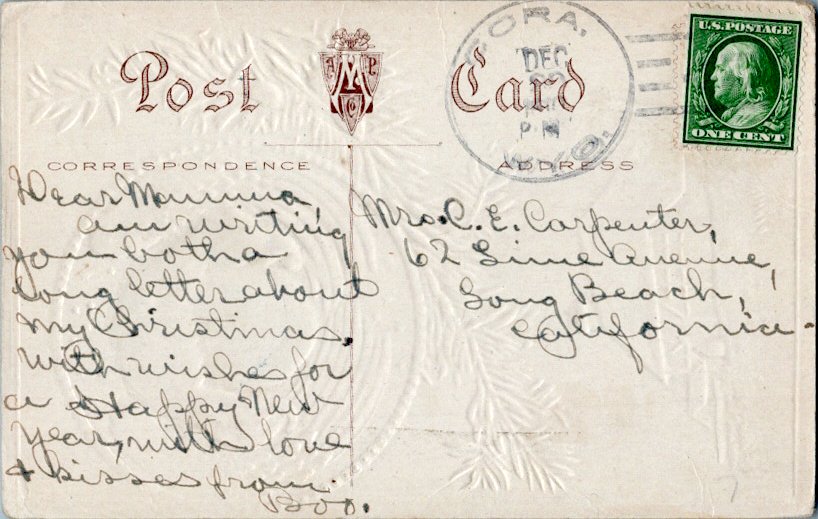 Post Card
A M P C
CORA,
DEC
PM
WYO.
U.S. POSTAGE
ONE CENT
CORRESPONDENCE
ADDRESS
Dear Mumma,
am writing
you both a
long letter about
my Christmas.
With wishes for
a Happy New
Year, with love
& kisses from
Boo.
Mrs. C. E. Carpenter,
62 Lime Avenue,
Long Beach,
California.